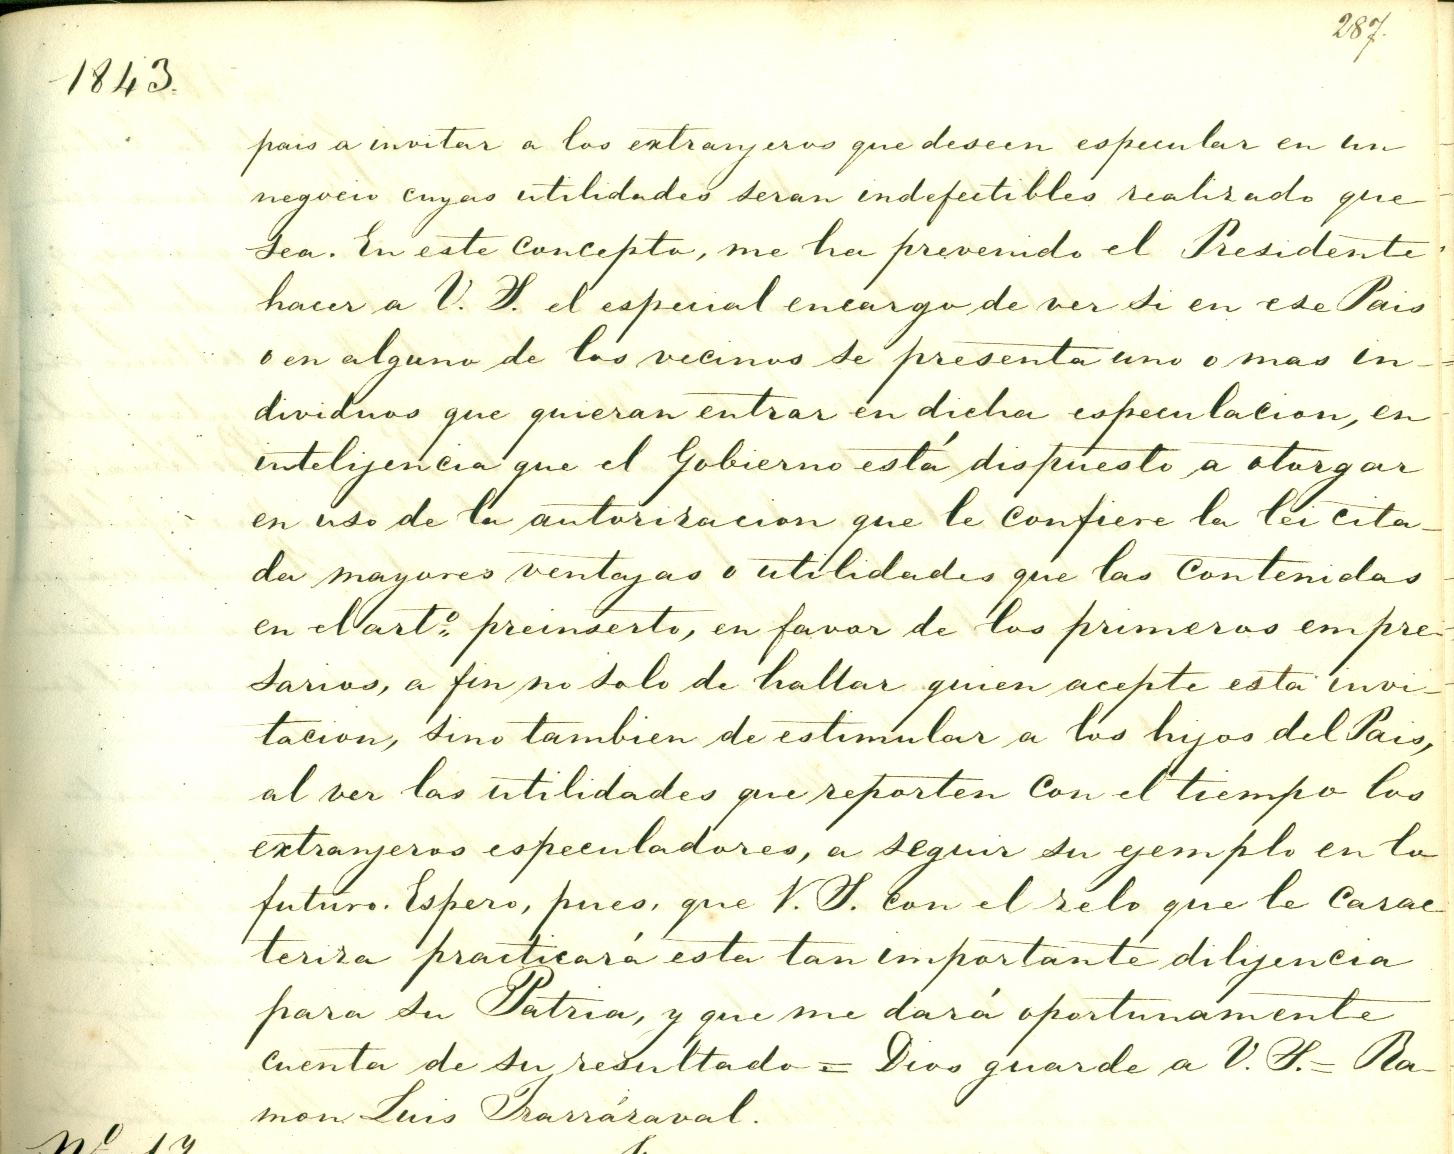 287.
1843.
pais a invitar a los extranjeros que deseen especular en un
negocio cuyas utilidades seran indefectibles realizado que
sea. En este concepto, me ha prevenido el Presidente
hacer a V. S. el especial encargo de ver si en ese Pais
o en alguno de los vecinos se presenta uno o mas in-
dividuos que quieran entrar en dicha especulacion, en
intelijencia que el Gobierno está dispuesto a otorgar
en uso de la autorizacion que le confiere la lei cita-
da mayores ventajas o utilidades que las contenidas
en el artº preinserto, en favor de los primeros empre-
sarios, a fin no solo de hallar quien acepte esta invi-
tacion, sino tambien de estimular a los hijos del Pais,
al ver las utilidades que reporten con el tiempo los
extranjeros especuladores, a seguir su ejemplo en lo
futuro. Espero, pues, que V. S. con el zelo que le carac
teriza practicará esta tan importante dilijencia
para su Patria, y que me dará oportunamente
cuenta de su resultado = Dios guarde a V. S. = Ra-
mon Luis Irarrázaval.
Nº